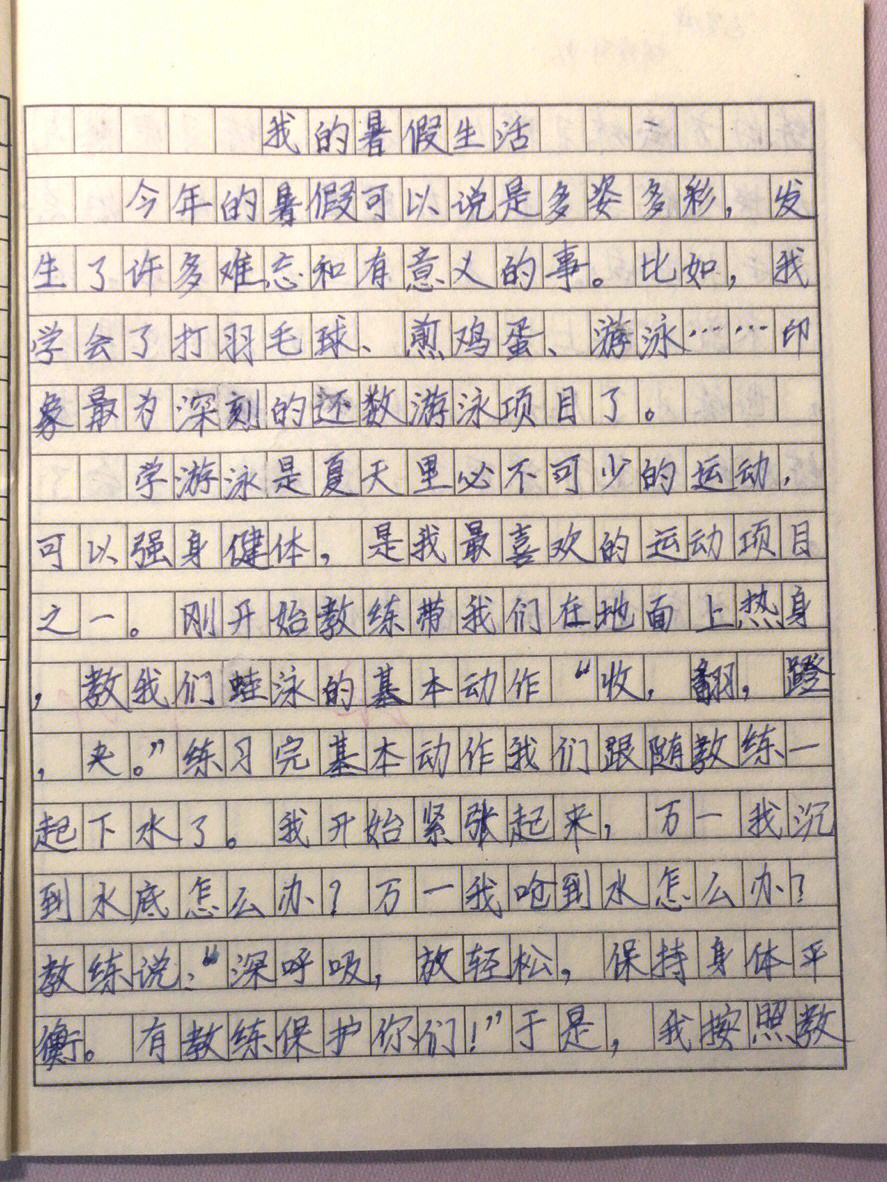 我的暑假生活
今年的暑假可以说是多姿多彩，发
生了许多难忘和有意义的事。比如，我
学会了打羽毛球、煎鸡蛋、游泳……印
象最为深刻的还数游泳项目了。
学游泳是夏天里必不可少的运动，
可以强身健体，是我最喜欢的运动项目
之一。刚开始教练带我们在地面上热身
，教我们蛙泳的基本动作“收，翻，蹬
，夹。”练习完基本动作我们跟随教练一
起下水了。我开始紧张起来，万一我沉
到水底怎么办？万一我呛到水怎么办？
教练说：“深呼吸，放轻松，保持身体平
衡。有教练保护你们！”于是，我按照教